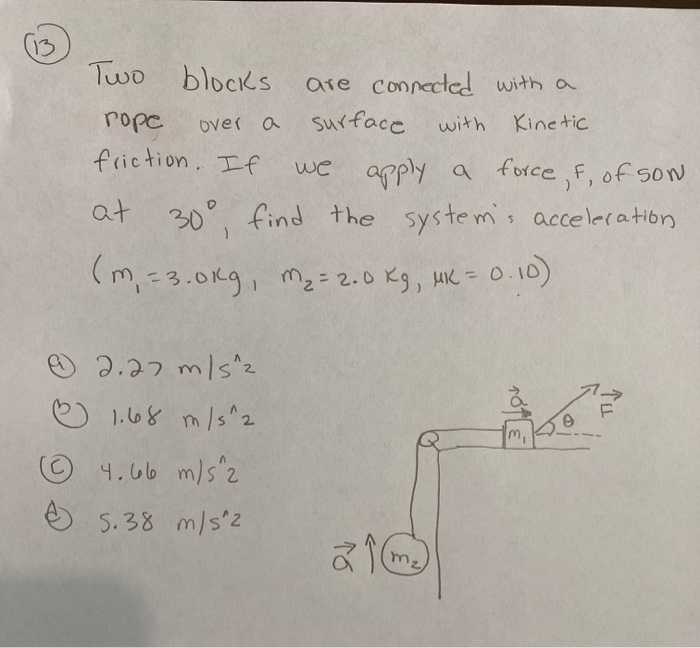 13
Two blocks are connected with a
rope over a surface with Kinetic
friction. If we apply a force, F, of 50N
at 30°, find the system's acceleration
(m₁=3.0kg, m₂=2.0 kg, μK = 0.10)
a) 2.27 m/s^2
b) 1.68 m/s^2
c) 4.66 m/s^2
d) 5.38 m/s^2
a⃗
F⃗
m₁ θ
a⃗ m₂